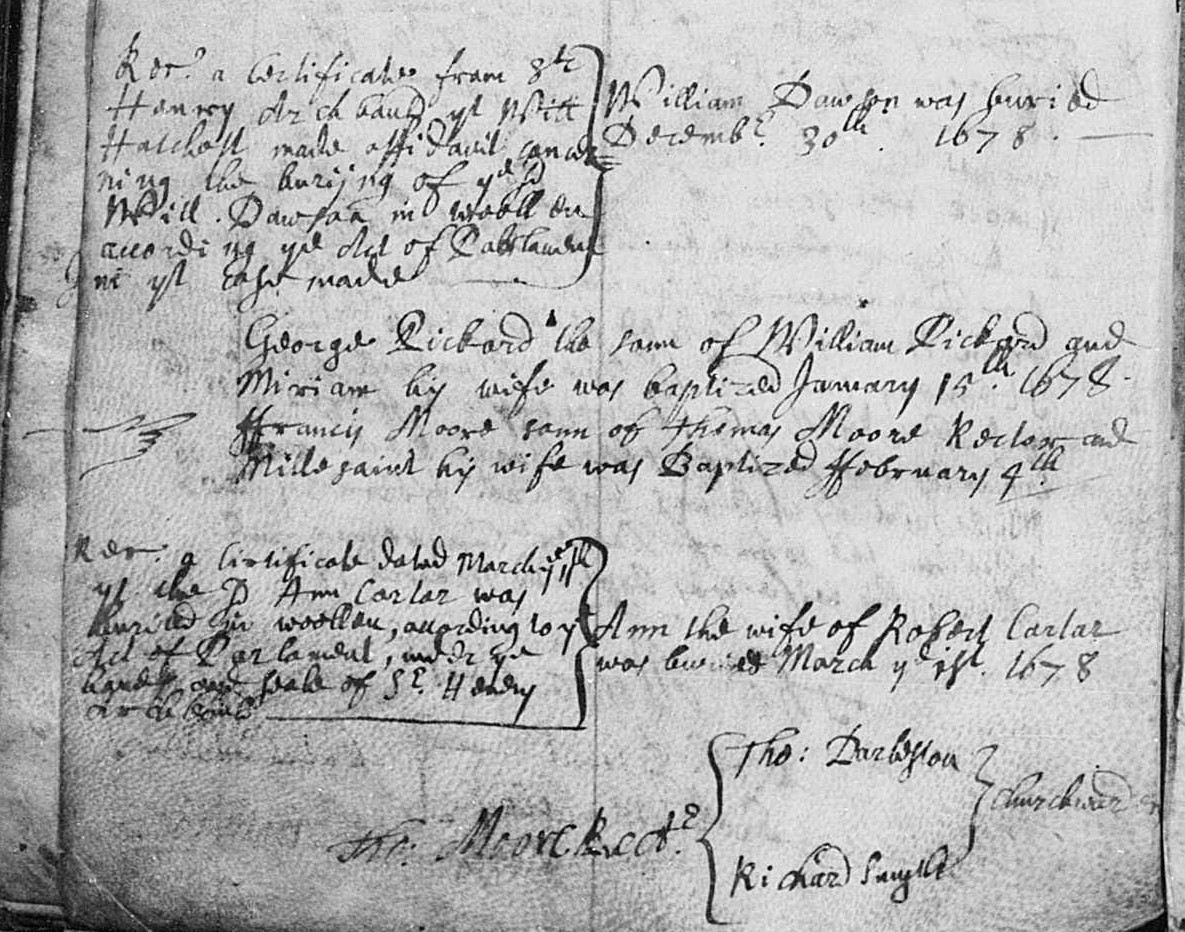 Rec.d a Certificate from Sr
Henry Archbaud yt Will
Hatchett made affidavit concer=
ning the buryjng of ye sd
Will. Dawson in woollen
according ye Act of Parlament
in yt case made
William Dawson was buried
Decembr. 30th. 1678.
George Rickard the sonn of William Rickard and
Miriam his wife was baptized January 15th. 1678.
Francis Moore sonn of Thomas Moore Rector and
Millesaint his wife was Baptized February 4th.
Rec. a Certificate dated March ye
yt the sd Ann Cartar was
buried in woollen, according to ye
Act of Parlament, under ye
hand and seale of Sr. Henry
Ann the wife of Robert Cartar
was buried March ye 1st. 1678
Tho: Darleston
Churchwarden
Tho: Moore Rectr.
Richard Smyth